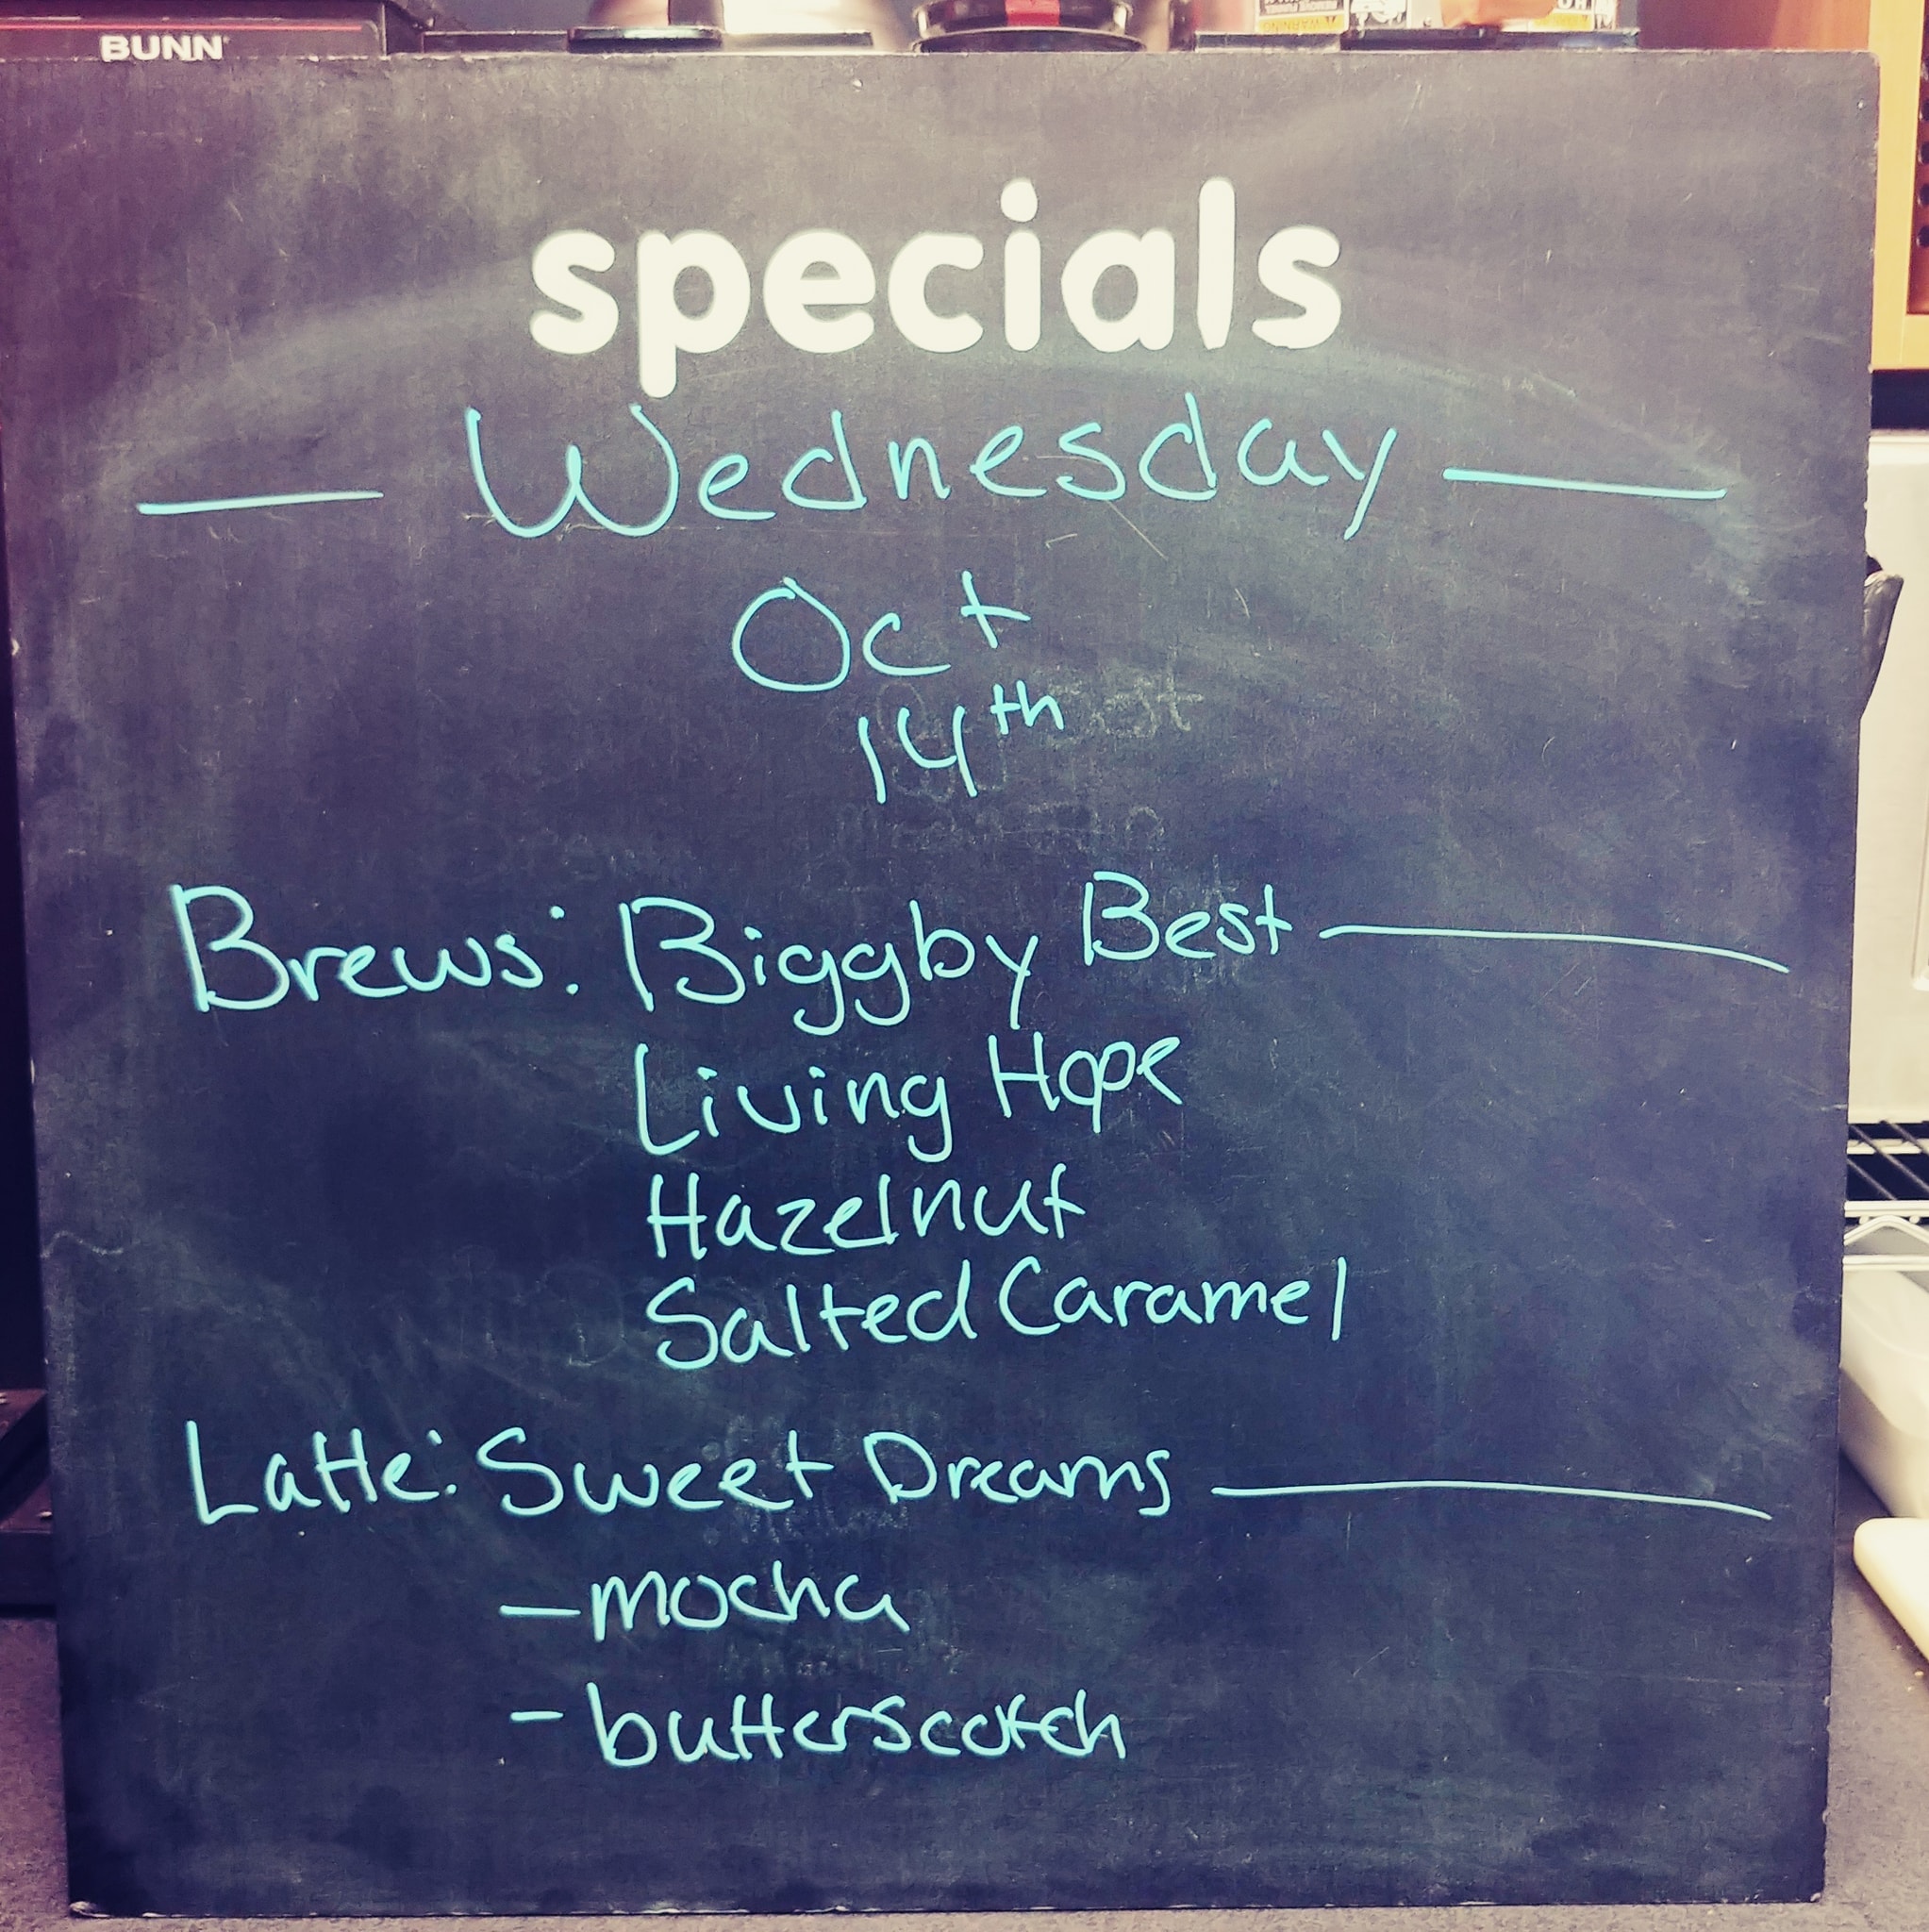 BUNN
specials
Wednesday
Oct
14th
Brews: Biggby Best
Living Hope
Hazelnut
Salted Caramel
Latte: Sweet Dreams
- mocha
- butterscotch